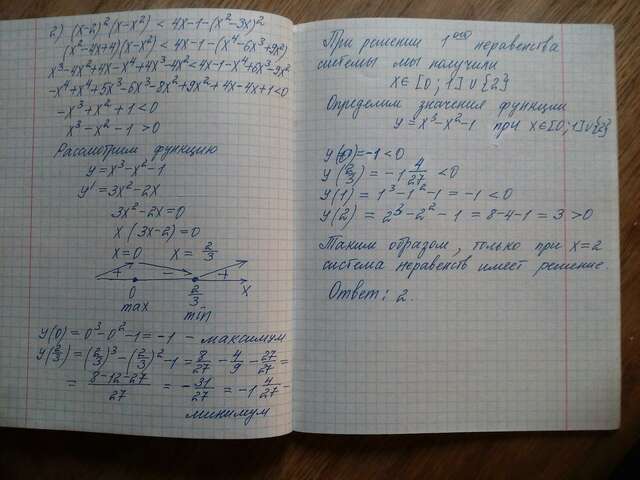 2) (x-2)²(x-x²) < 4x-1-(x²-3x)²
(x²-4x+4)(x-x²) < 4x-1-(x⁴-6x³+9x²)
x³-4x²+4x-x⁴+4x³-4x² < 4x-1-x⁴+6x³-9x²
-x⁴+x⁴+5x³-6x³-8x²+9x²+4x-4x+1<0
-x³+x²+1<0
x³-x²-1>0
Рассмотрим функцию
y=x³-x²-1
y'=3x²-2x
3x²-2x=0
x(3x-2)=0
x=0 x=2/3
+ - +
0 2/3 x
max min
y(0)=0³-0²-1=-1 - максимум
y(2/3)=(2/3)³-(2/3)²-1=8/27-4/9-27/27=
=(8-12-27)/27=-31/27=-1 4/27 -
минимум
При решении 1ого неравенства
системы мы получили
x∈[0;1]∪{2}
Определим значения функции
y=x³-x²-1 при x∈[0;1]∪{2}
y(0)=-1<0
y(2/3)=-1 4/27<0
y(1)=1³-1²-1=-1<0
y(2)=2³-2²-1=8-4-1=3>0
Таким образом, только при x=2
система неравенств имеет решение.
Ответ: 2.